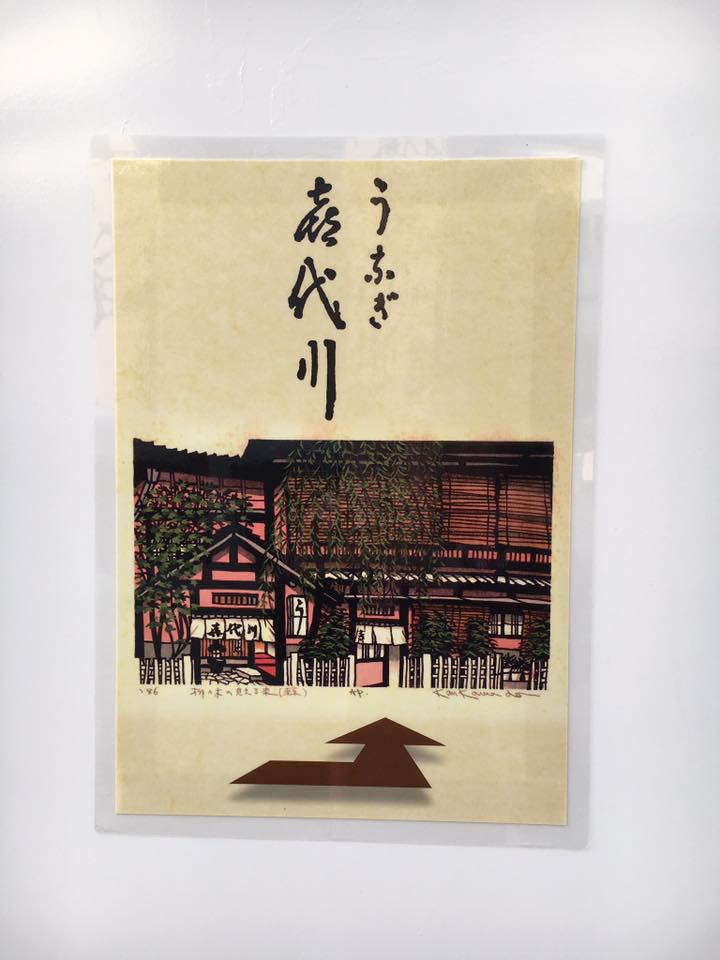 うなぎ
喜代川
喜代川
う
'86
柳の木の見える家
AP.